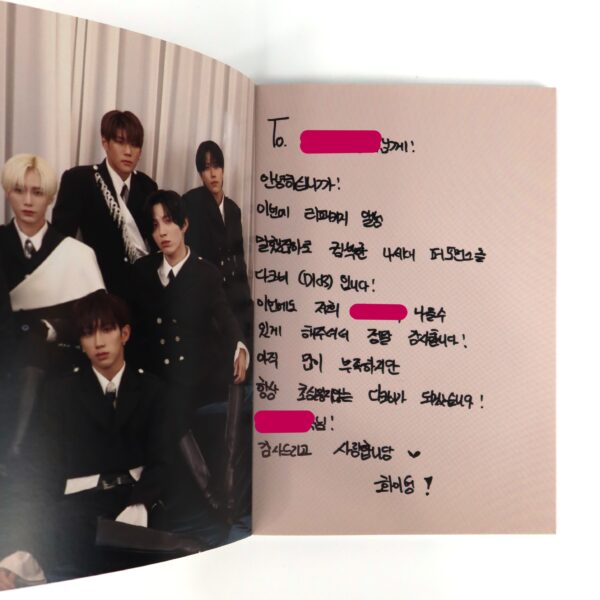 To. 님께!
안녕하십니까!
이번에 리패키지 앨범
으로
다크비 (DKB) 입니다!
이번에도 저희 나올수
있게 해주셔서 정말 감사합니다!
아직 많이 부족하지만
항상 초심잃지않는 다크비가 되겠습니다!
님!
감사드리고 사랑합니당 ♥
화이팅!